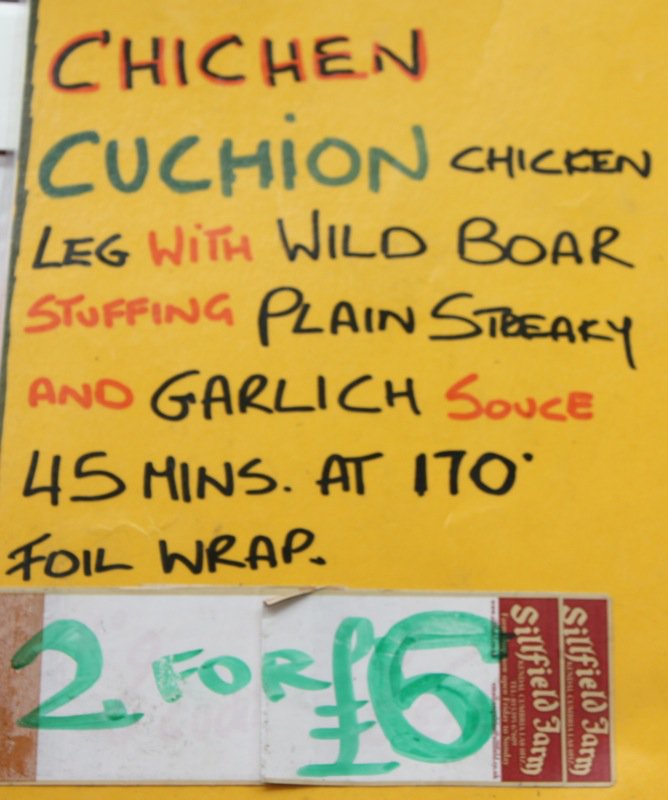 CHICHEN
CUCHiON CHICKEN
LEG WiTH WILD BOAR
STUFFING PLAIN STREAKY
AND GARLICH SOUCE
45 MINS. AT 170°
FOIL WRAP.
2 FOR £6
Sillfield Farm
Sillfield Farm